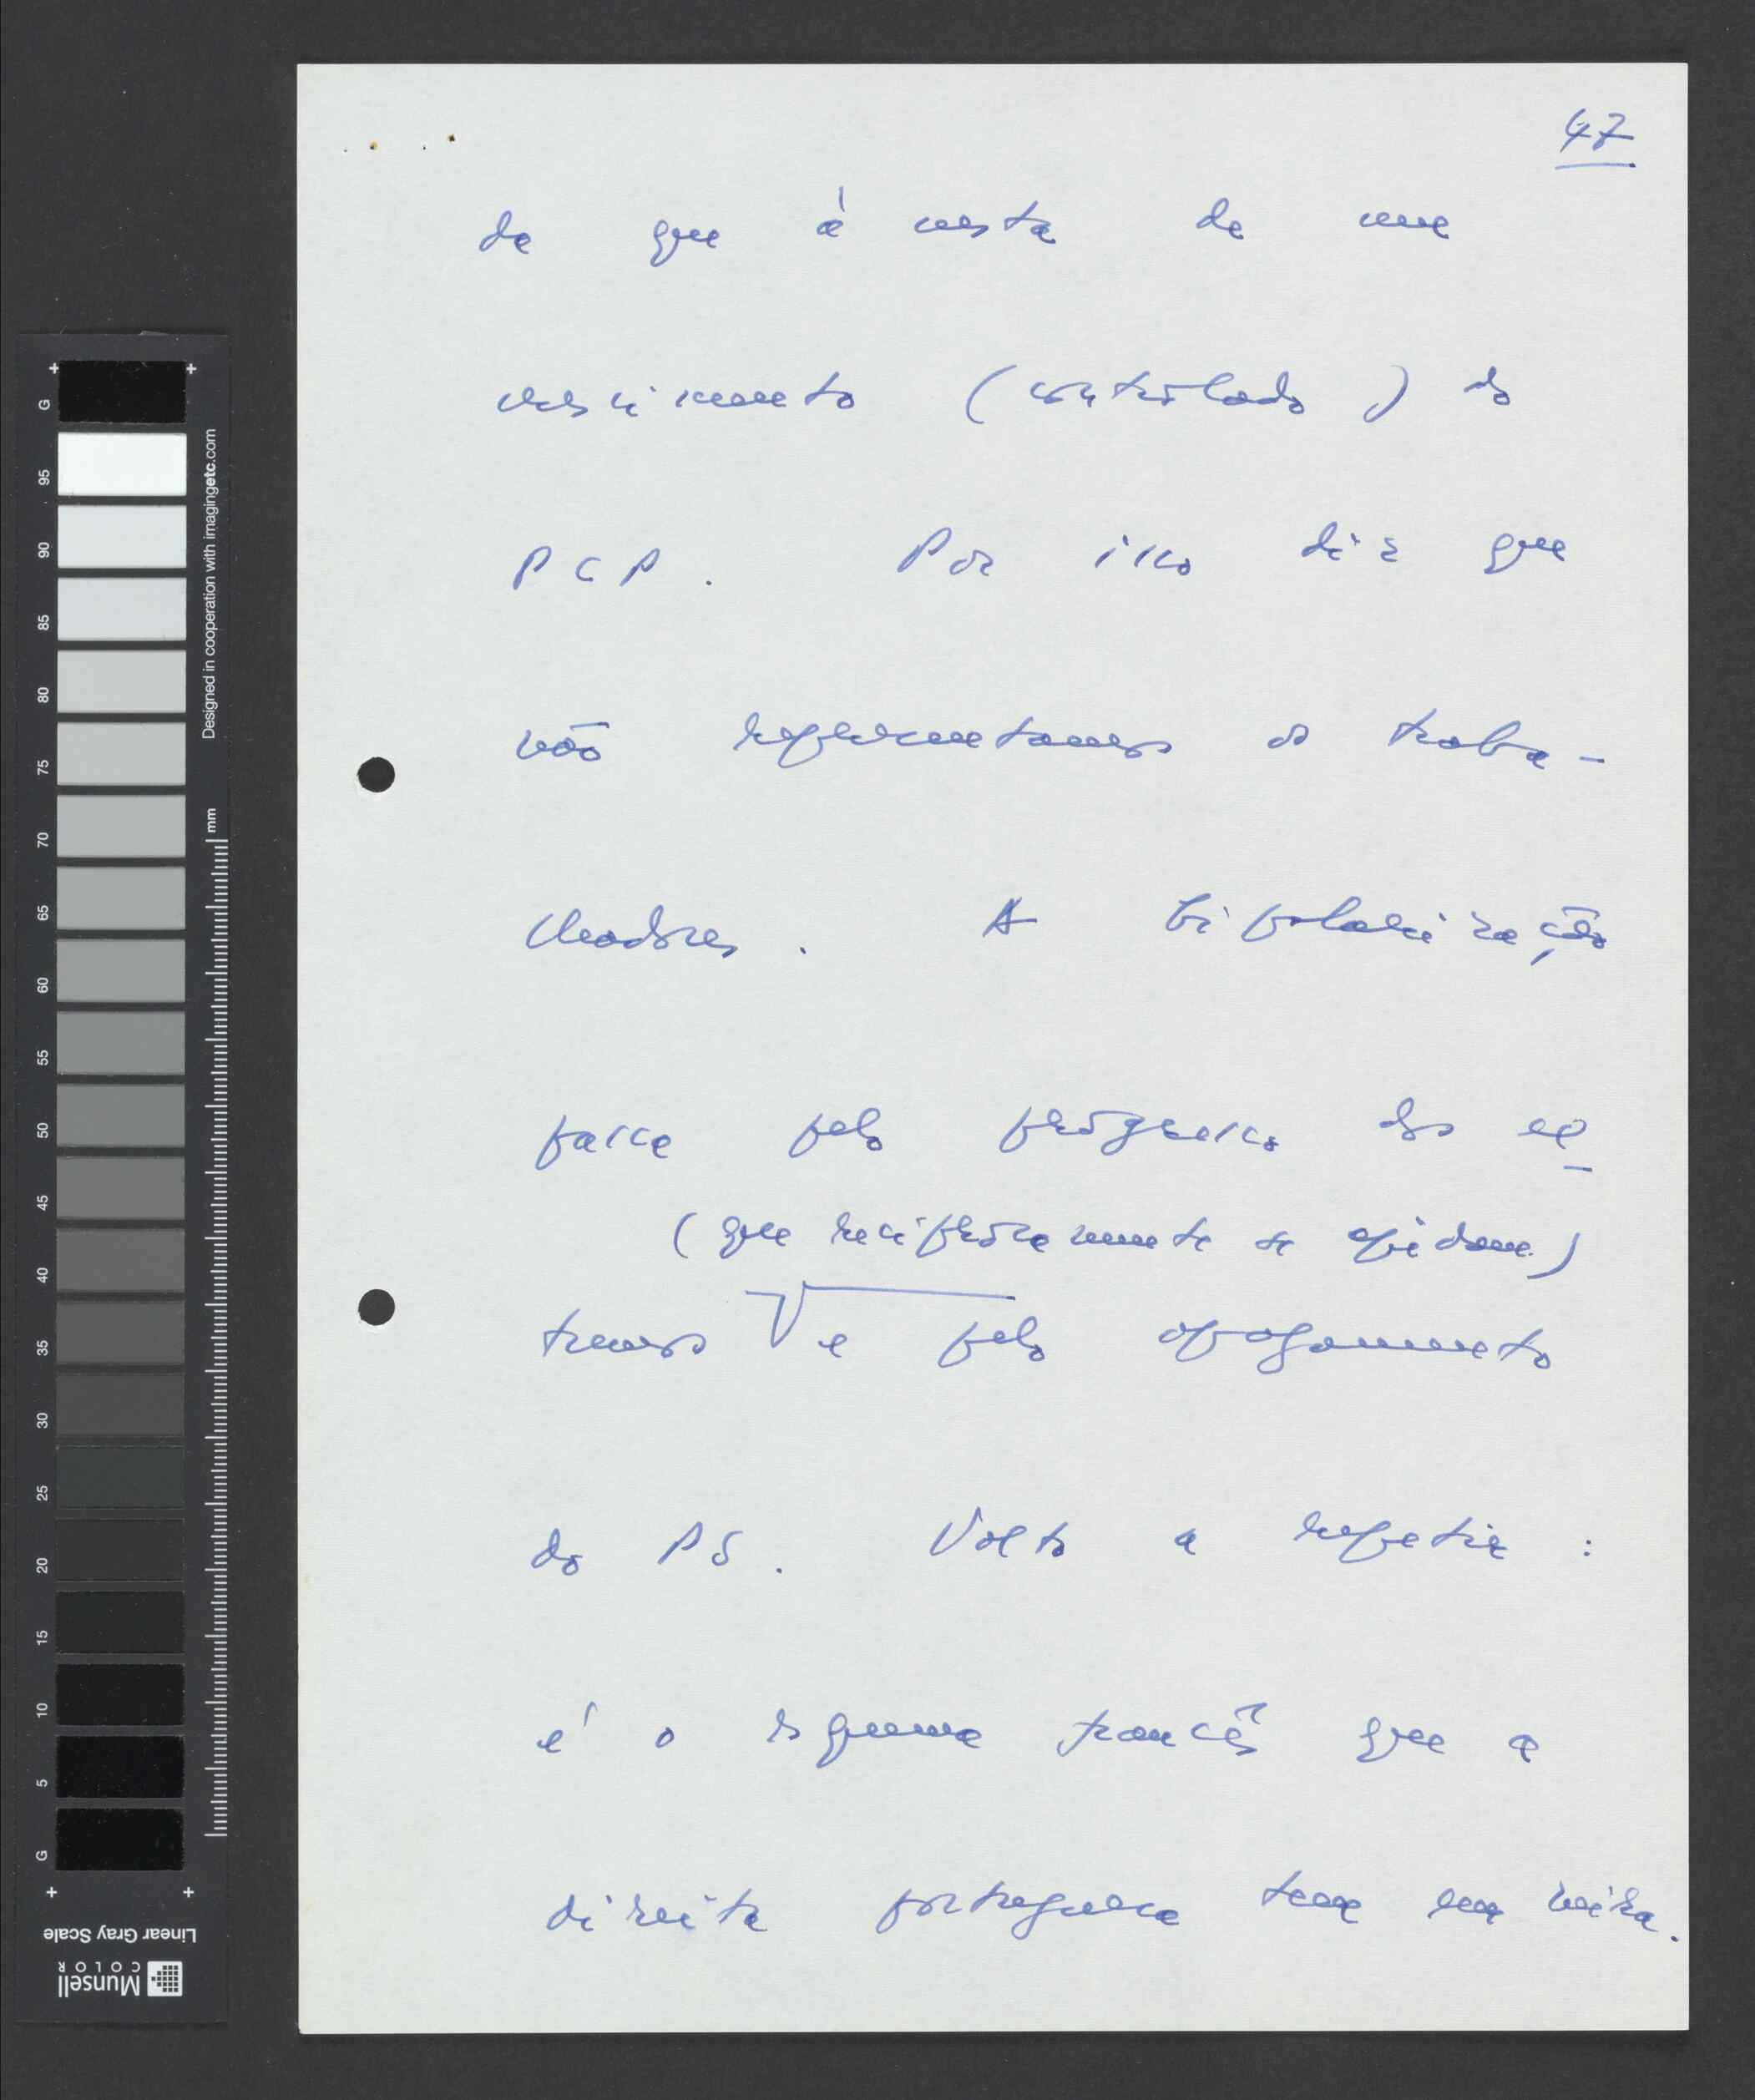 47
da que à custa de um
crescimento (controlado) do
PCP. Por isso diz que
não representamos os traba-
lhadores. A bipolarização
passa pelo progresso dos ex
(que reciprocamente se ajudam)
tremos e pelo apagamento
do PS. Volto a repetir :
é o esquema francês que a
direita portuguesa tem em mira.
G
95
90
85
80
75
70
65
60
55
50
45
40
35
30
25
20
15
10
5
G
mm
Designed in cooperation with imagingetc.com
Linear Gray Scale
Munsell
COLOR